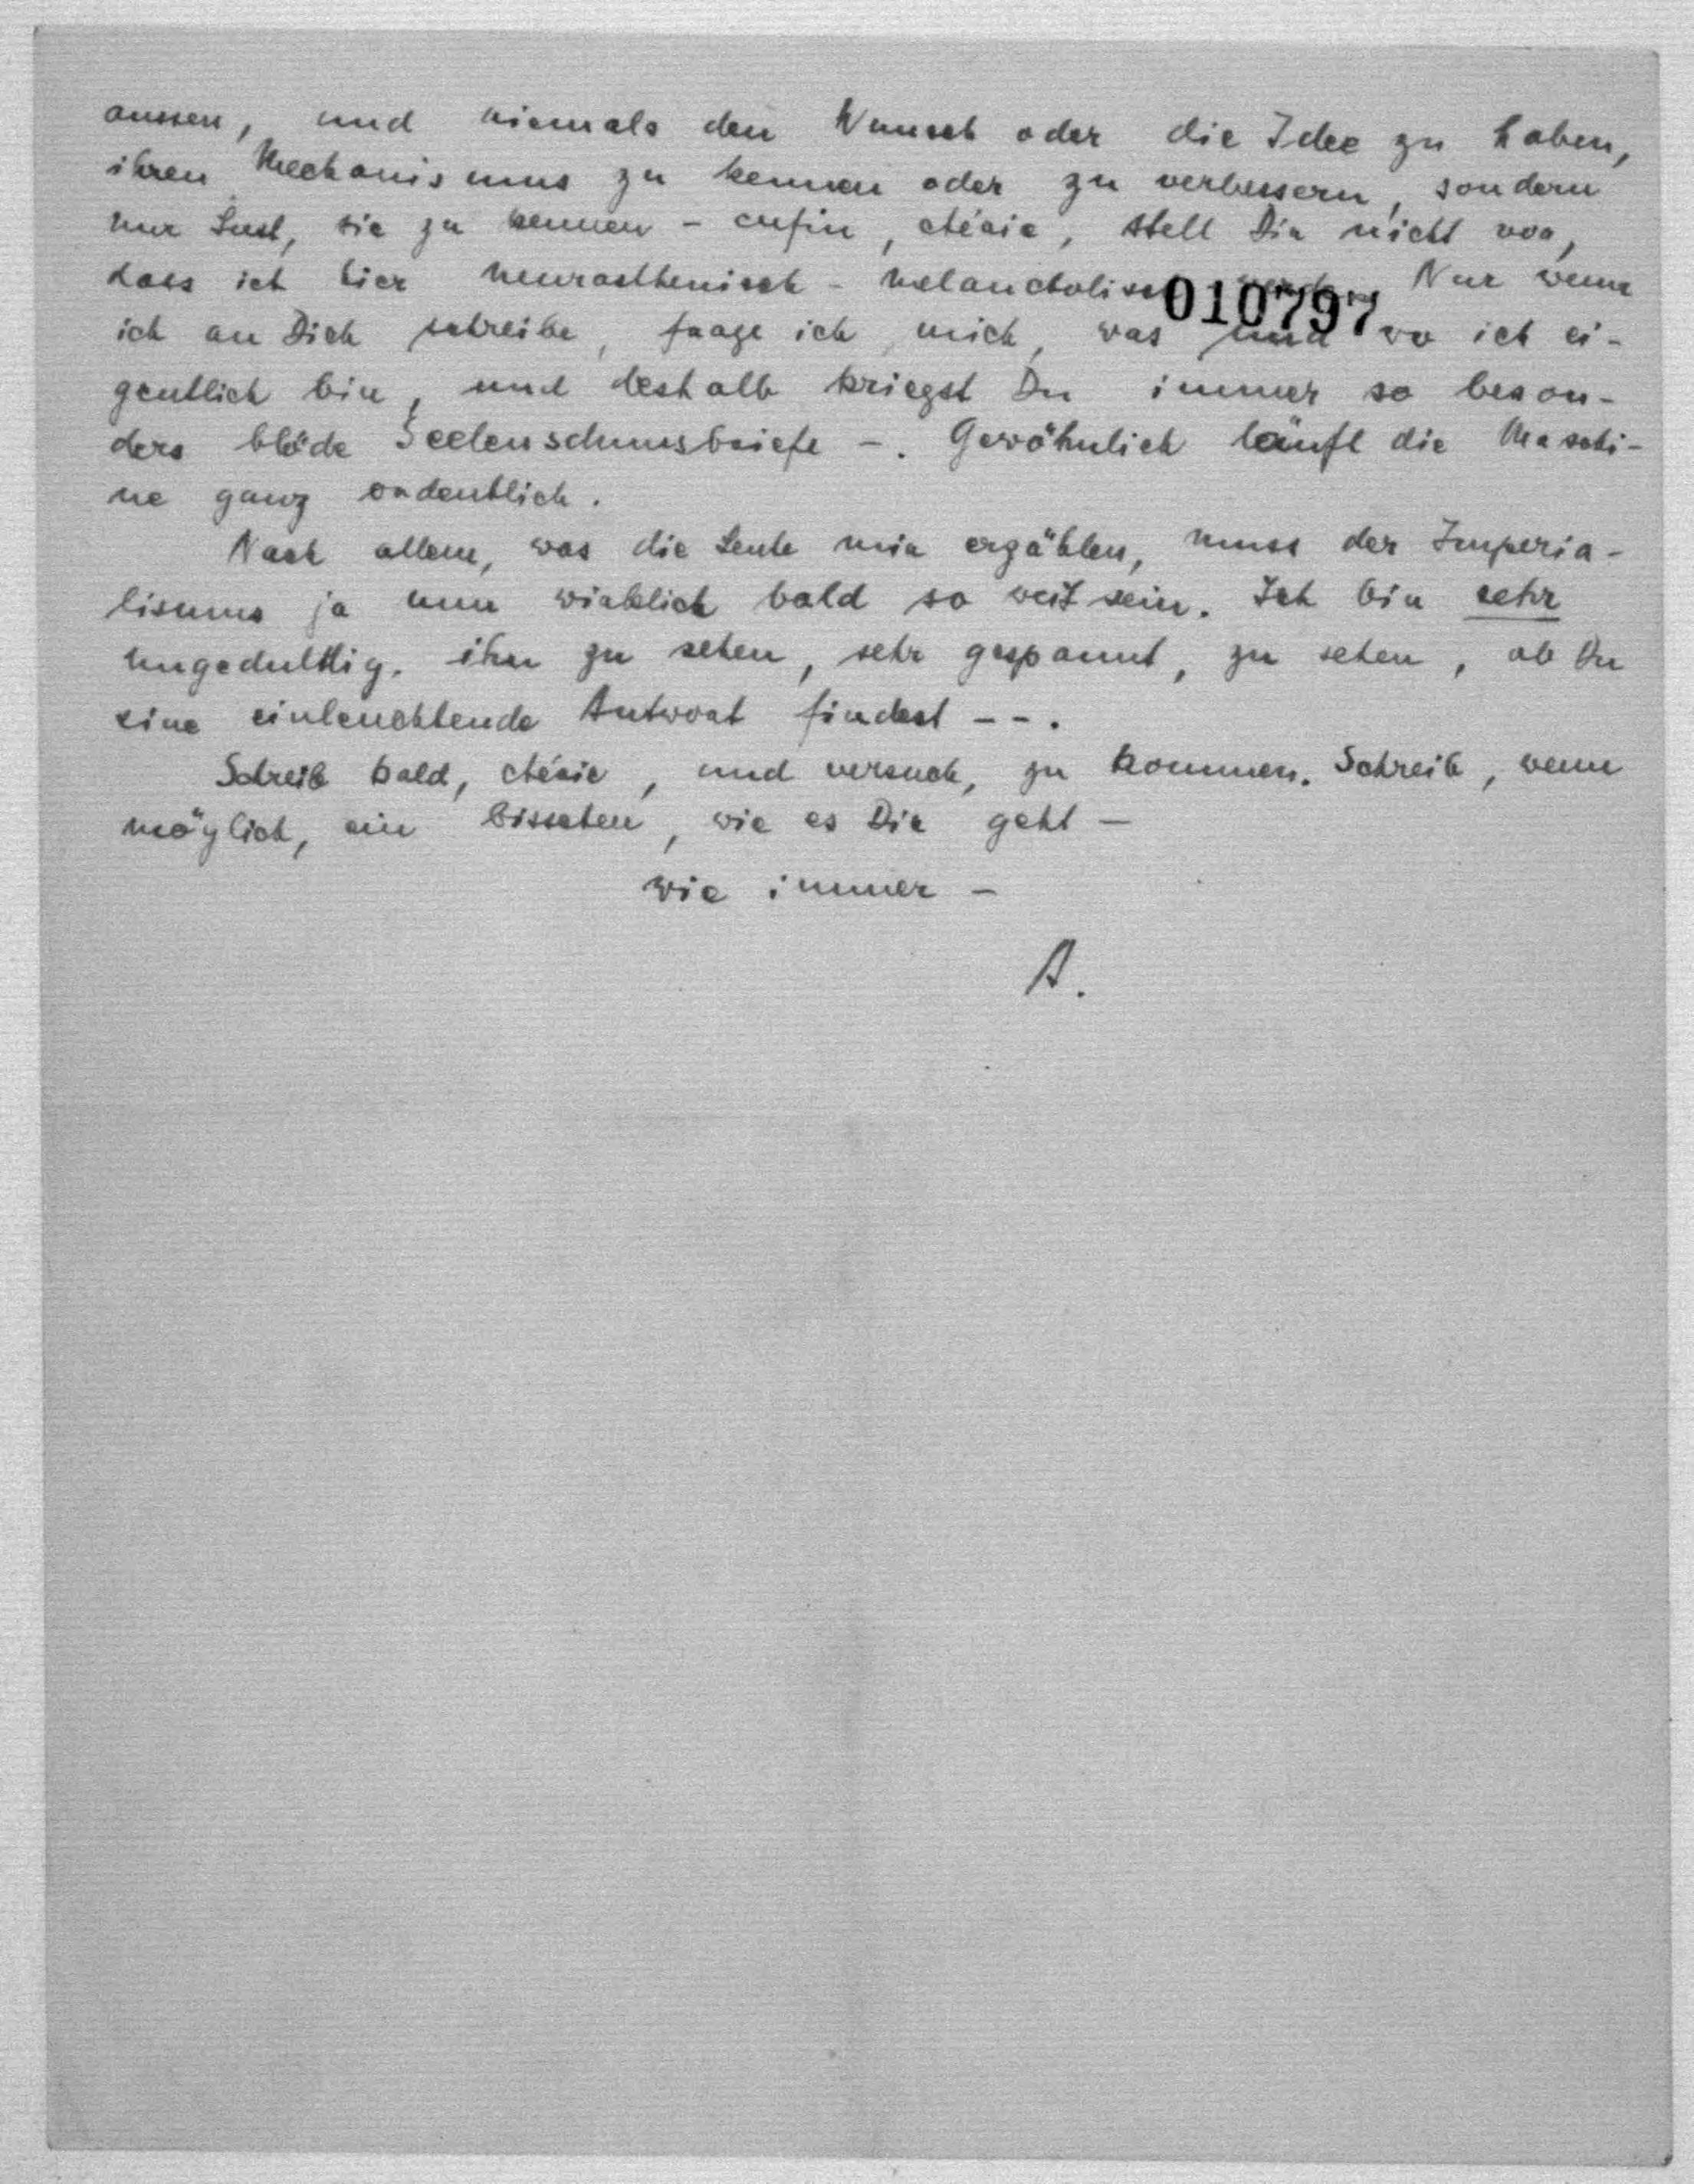 aussen, und niemals den Wunsch oder die Idee zu haben,
ihren Mechanismus zu kennen oder zu verbessern, sondern
nur Lust, sie zu kennen - enfin, chérie, stell Dir nicht vor,
dass ich hier neurasthenisch - melancholisch werde. Nur wenn
010797
ich an Dich schreibe, frage ich mich, was und wo ich ei-
gentlich bin, und deshalb kriegst Du immer so beson-
ders blöde Seelenschmusbriefe - . Gewöhnlich läuft die Maschi-
ne ganz ordentlich.
Nach allem, was die Leute mir erzählen, muss der Imperia-
lismus ja nun wirklich bald so weit sein. Ich bin sehr
ungeduldig, ihn zu sehen, sehr gespannt, zu sehen, ob Du
eine einleuchtende Antwort findest - - .
Schreib bald, chérie, und versuch, zu kommen. Schreib, wenn
möglich, ein bisschen, wie es Dir geht -
wie immer -
A.